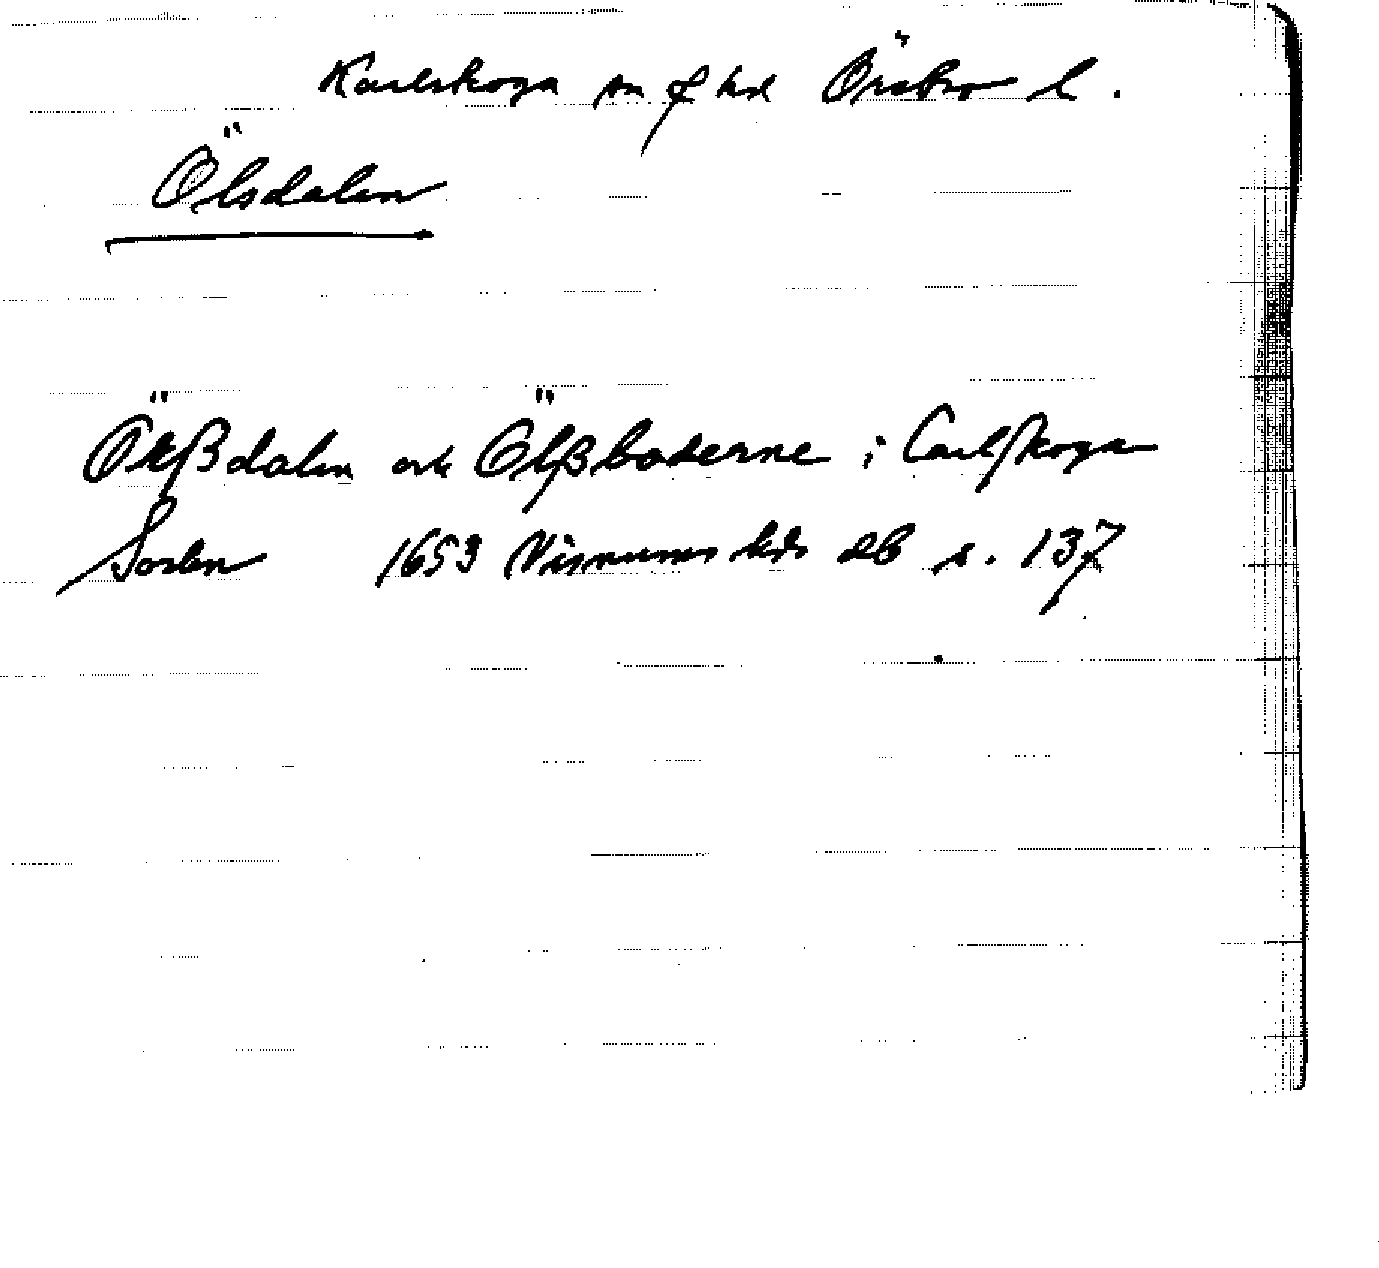 Karlskoga sn o f hd Örebro l.
Ölsdalen
Ölßdalen och Ölßboderne i Carlskoga
Socken 1653 Visnums hds db s. 137